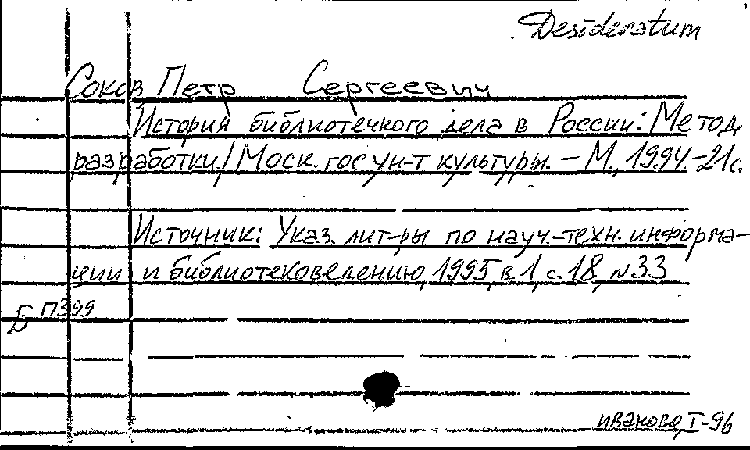 Desideratum
Соков Петр Сергеевич
История библиотечного дела в России: Метод.
разработки / Моск. гос ун-т культуры. – М., 1994.-21с.
Источник: Указ. лит-ры по науч.-техн. информа-
ции и библиотековедению, 1995, в.1, с.18, №33
Б П399
иваново, I-96